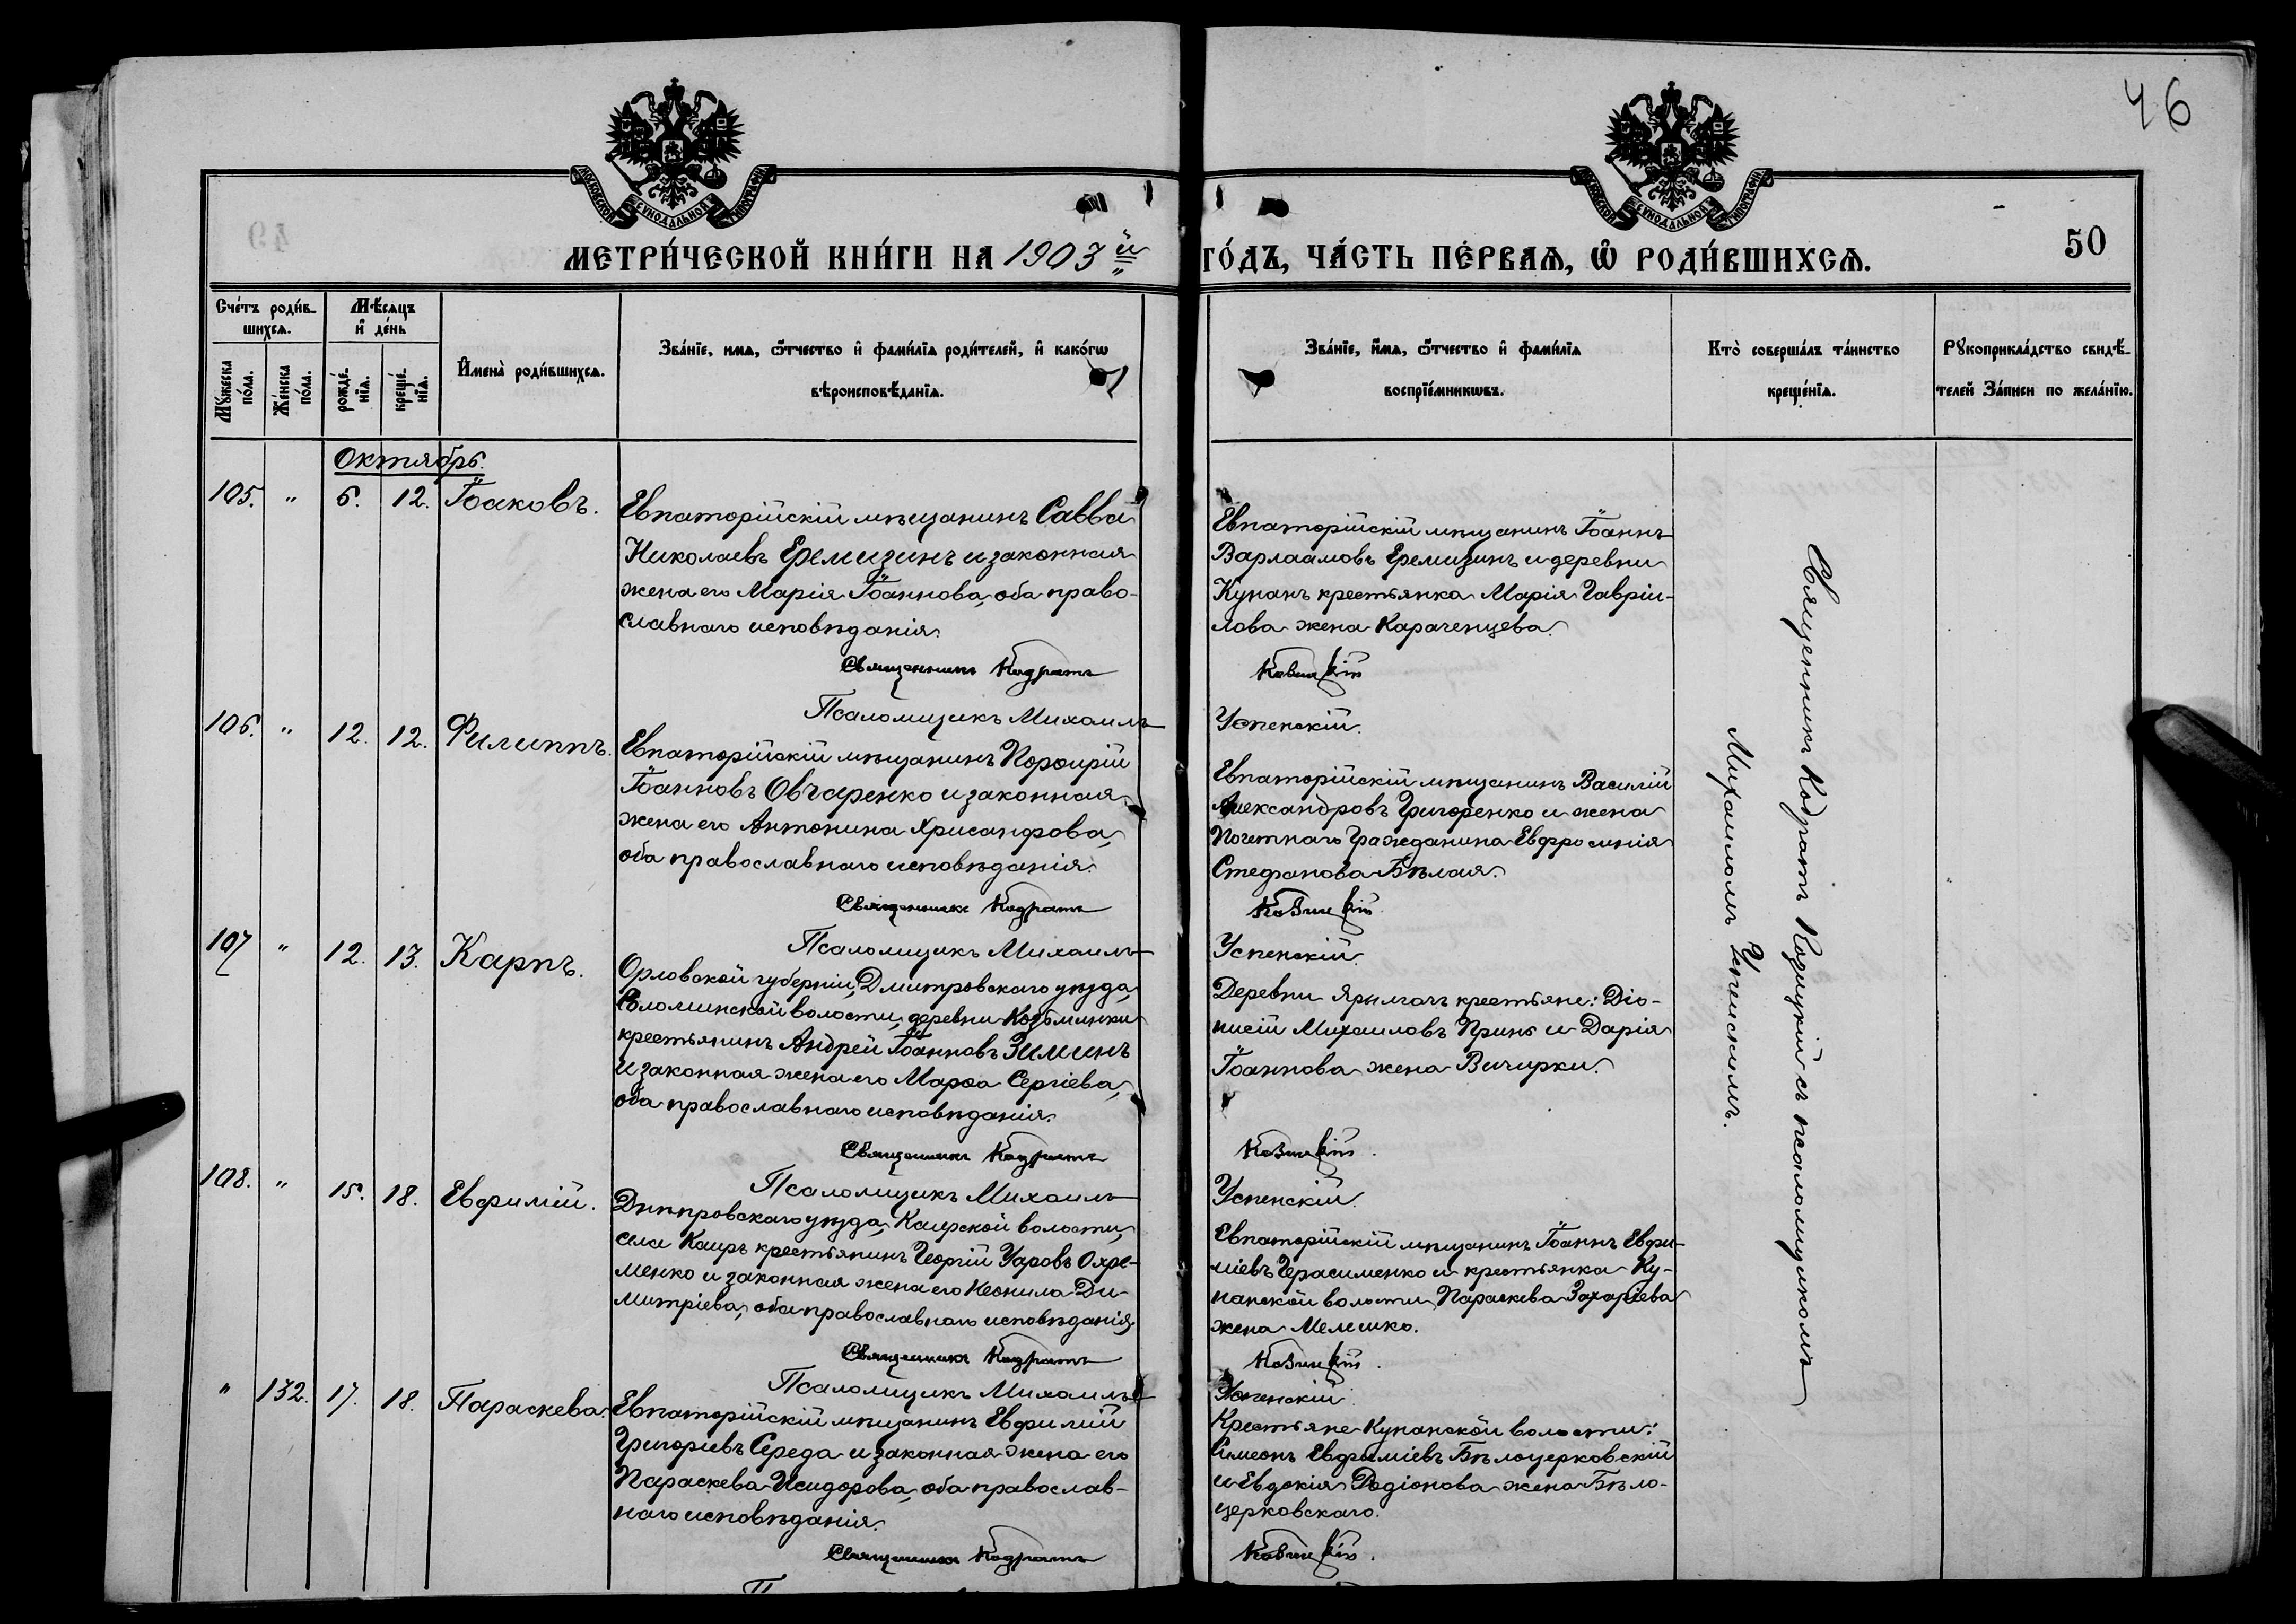 46
МОСКОВСКОЙ СѴНОДАЛЬНОЙ ТИПОГРАФІИ
МОСКОВСКОЙ СѴНОДАЛЬНОЙ ТИПОГРАФІИ
49
МЕТРИ́ЧЕСКОЙ КНИ́ГИ НА 1903й
ГО́ДЪ, ЧА́СТЬ ПЕ́РВАѦ, Ѡ҆ РОДИ́ВШИХСѦ.
50
Сче́тъ роди́в-
шихсѧ.
Мꙋжеска по́ла.
Же́нска по́ла.
Мѣсѧцъ
и҆ де́нь
рожде́-
нїѧ.
креще́-
нїѧ.
И҆мена̀ роди́вшихсѧ.
Зва́нїе, имѧ, ѻ҆́тчество и҆ фами́лїѧ роди́телей, и҆ како́гѡ
вѣроисповѣ́данїѧ.
Зва́нїе, и҆́мѧ, ѻ҆́тчество и҆ фами́лїѧ
воспрїе́мникѡвъ.
Кто̀ соверша́лъ та́инство
креще́нїѧ.
Рꙋкоприкла́дство свидѣ́-
телей За́писи по жела́нїю.
Октябрь.
105. " 6. 12. Іоаковъ.
Евпаторійскій мѣщанинъ Савва
Николаевъ Еремизинъ и законная
жена его Марія Іоаннова, оба право-
славнаго исповѣданія.
Священникъ Кодратъ
Псаломщикъ Михаилъ
Евпаторійскій мѣщанинъ Іоаннъ
Варлаамовъ Еремизинъ и деревни
Кунанъ крестьянка Марія Гавріи-
лова жена Караченцева.
Козицкій
Успенскій.
106. " 12. 12. Филиппъ.
Евпаторійскій мѣщанинъ Порфирій
Іоанновъ Овчаренко и законная
жена его Антонина Хрисанфова,
оба православнаго исповѣданія.
Священникъ Кодратъ
Псаломщикъ Михаилъ
Евпаторійскій мѣщанинъ Василій
Александровъ Григоренко и жена
Почетнаго Гражданина Евфросинія
Стефанова Бѣлая.
Козицкій.
Успенскій.
107 " 12. 13. Карпъ.
Орловской губерніи, Дмитровскаго уѣзда,
волости, деревни Козьминки
крестьянинъ Андрей Іоанновъ Зиминъ
и законная жена его Марѳа Сергіева,
оба православнаго исповѣданія.
Священникъ Кодратъ
Псаломщикъ Михаилъ
Деревни Ярылгачъ крестьяне: Діо-
нисій Михаиловъ Принь и Дарія
Іоаннова жена Вичирки.
Козицкій.
Успенскій.
108. " 15. 18. Евфимій.
Днѣпровскаго уѣзда, Каирской волости,
села Каиръ крестьянинъ Георгій Уаровъ Охре-
менко и законная жена его Неонила Ди-
митріева, оба православнаго исповѣданія.
Священникъ Кодратъ
Псаломщикъ Михаилъ
Евпаторійскій мѣщанинъ Іоаннъ Евфи-
міевъ Герасименко и крестьянка Ку-
нанской волости Параскева Захаріева
жена Мелешко.
Козицкій.
Успенскій.
" 132. 17. 18. Параскева.
Евпаторійскій мѣщанинъ Евфимій
Григоріевъ Середа и законная жена его
Параскева Исидорова, оба православ-
наго исповѣданія.
Священникъ Кодратъ
Крестьяне Кунанской волости:
Симеонъ Евфиміевъ Бѣлоцерковскій
и Евдокія Родіонова жена Бѣло-
церковскаго.
Козицкій.
Священникъ Кодратъ Козицкій съ псаломщикомъ
Михаиломъ Успенскимъ.